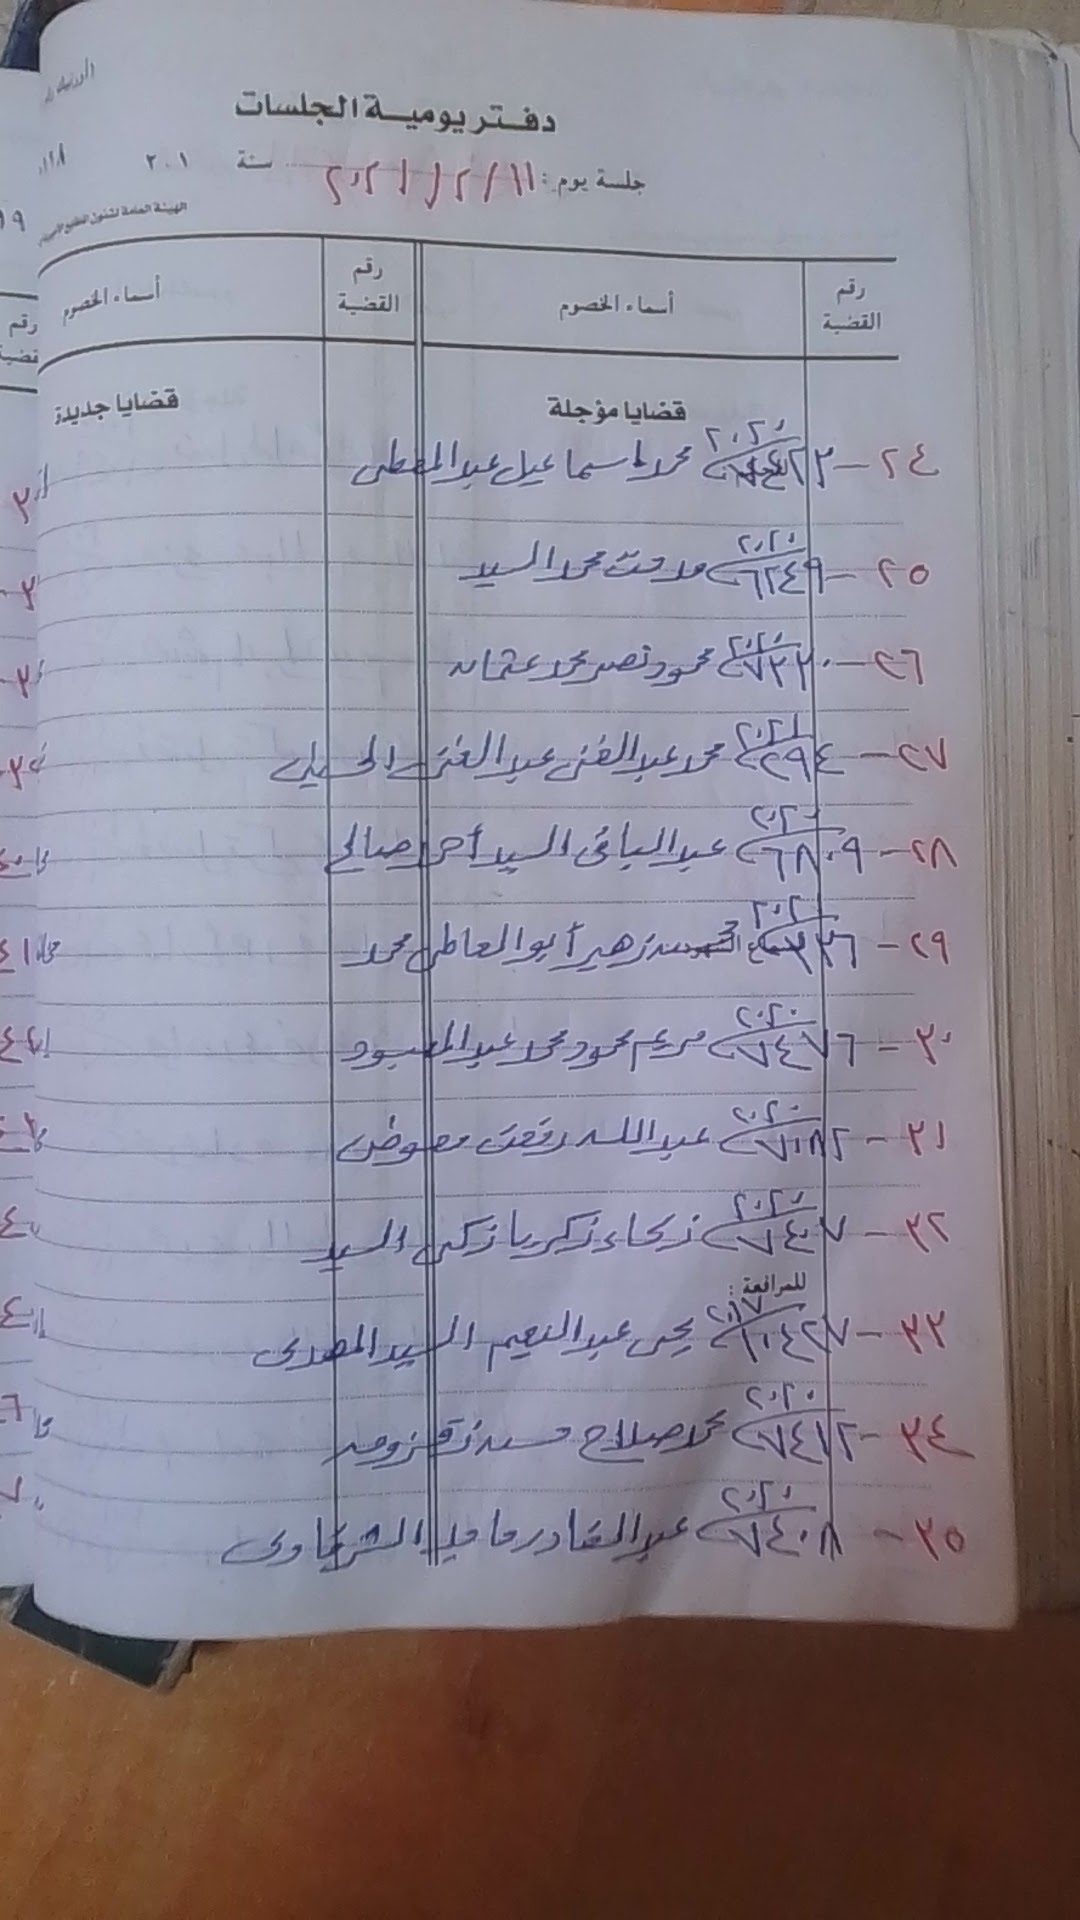 دفتر يومية الجلسات
جلسة يوم: ٢٠٢١/٢/١١ سنة ٢٠١
الهيئة العامة لشئون المطابع الأميرية
رقم القضية أسماء الخصوم رقم القضية أسماء الخصوم
قضايا مؤجلة قضايا جديدة
٢٤ - ٢٠٢٠ محمد اسماعيل عبد المعطى
٢٥ - ٦٢٤٩ ٢٠٢٠ مدحت محمد السيد
٢٦ - ٧٣٢٠ ٢٠٢٠ محمود نصر محمد عثمان
٢٧ - ٢٩٤ ٢٠٢١ محمد عبد الغنى عبد الغنى
٢٨ - ٦٨٠٩ ٢٠٢٠ عبد الباقى السيد أحمد صالح
٢٩ - زهير أبو العاطى محمد
٣٠ - ٧٤٧٦ ٢٠٢٠ مريم محمود محمد عبد المعبود
٣١ - ٧١٨٢ ٢٠٢٠ عبد الله رفعت معوض
٣٢ - ٧٤٠٧ ٢٠٢٠ زكريا زكى السيد
للمرافعة :
٣٣ - ١٠٤٢٧ ٢٠١٧ يحى عبد النعيم السيد المصرى
٣٤ - ٧٤١٢ ٢٠٢٠ محمد صلاح
٣٥ - ٧٤٠٨ ٢٠٢٠ عبد القادر حامد الشرقاوى